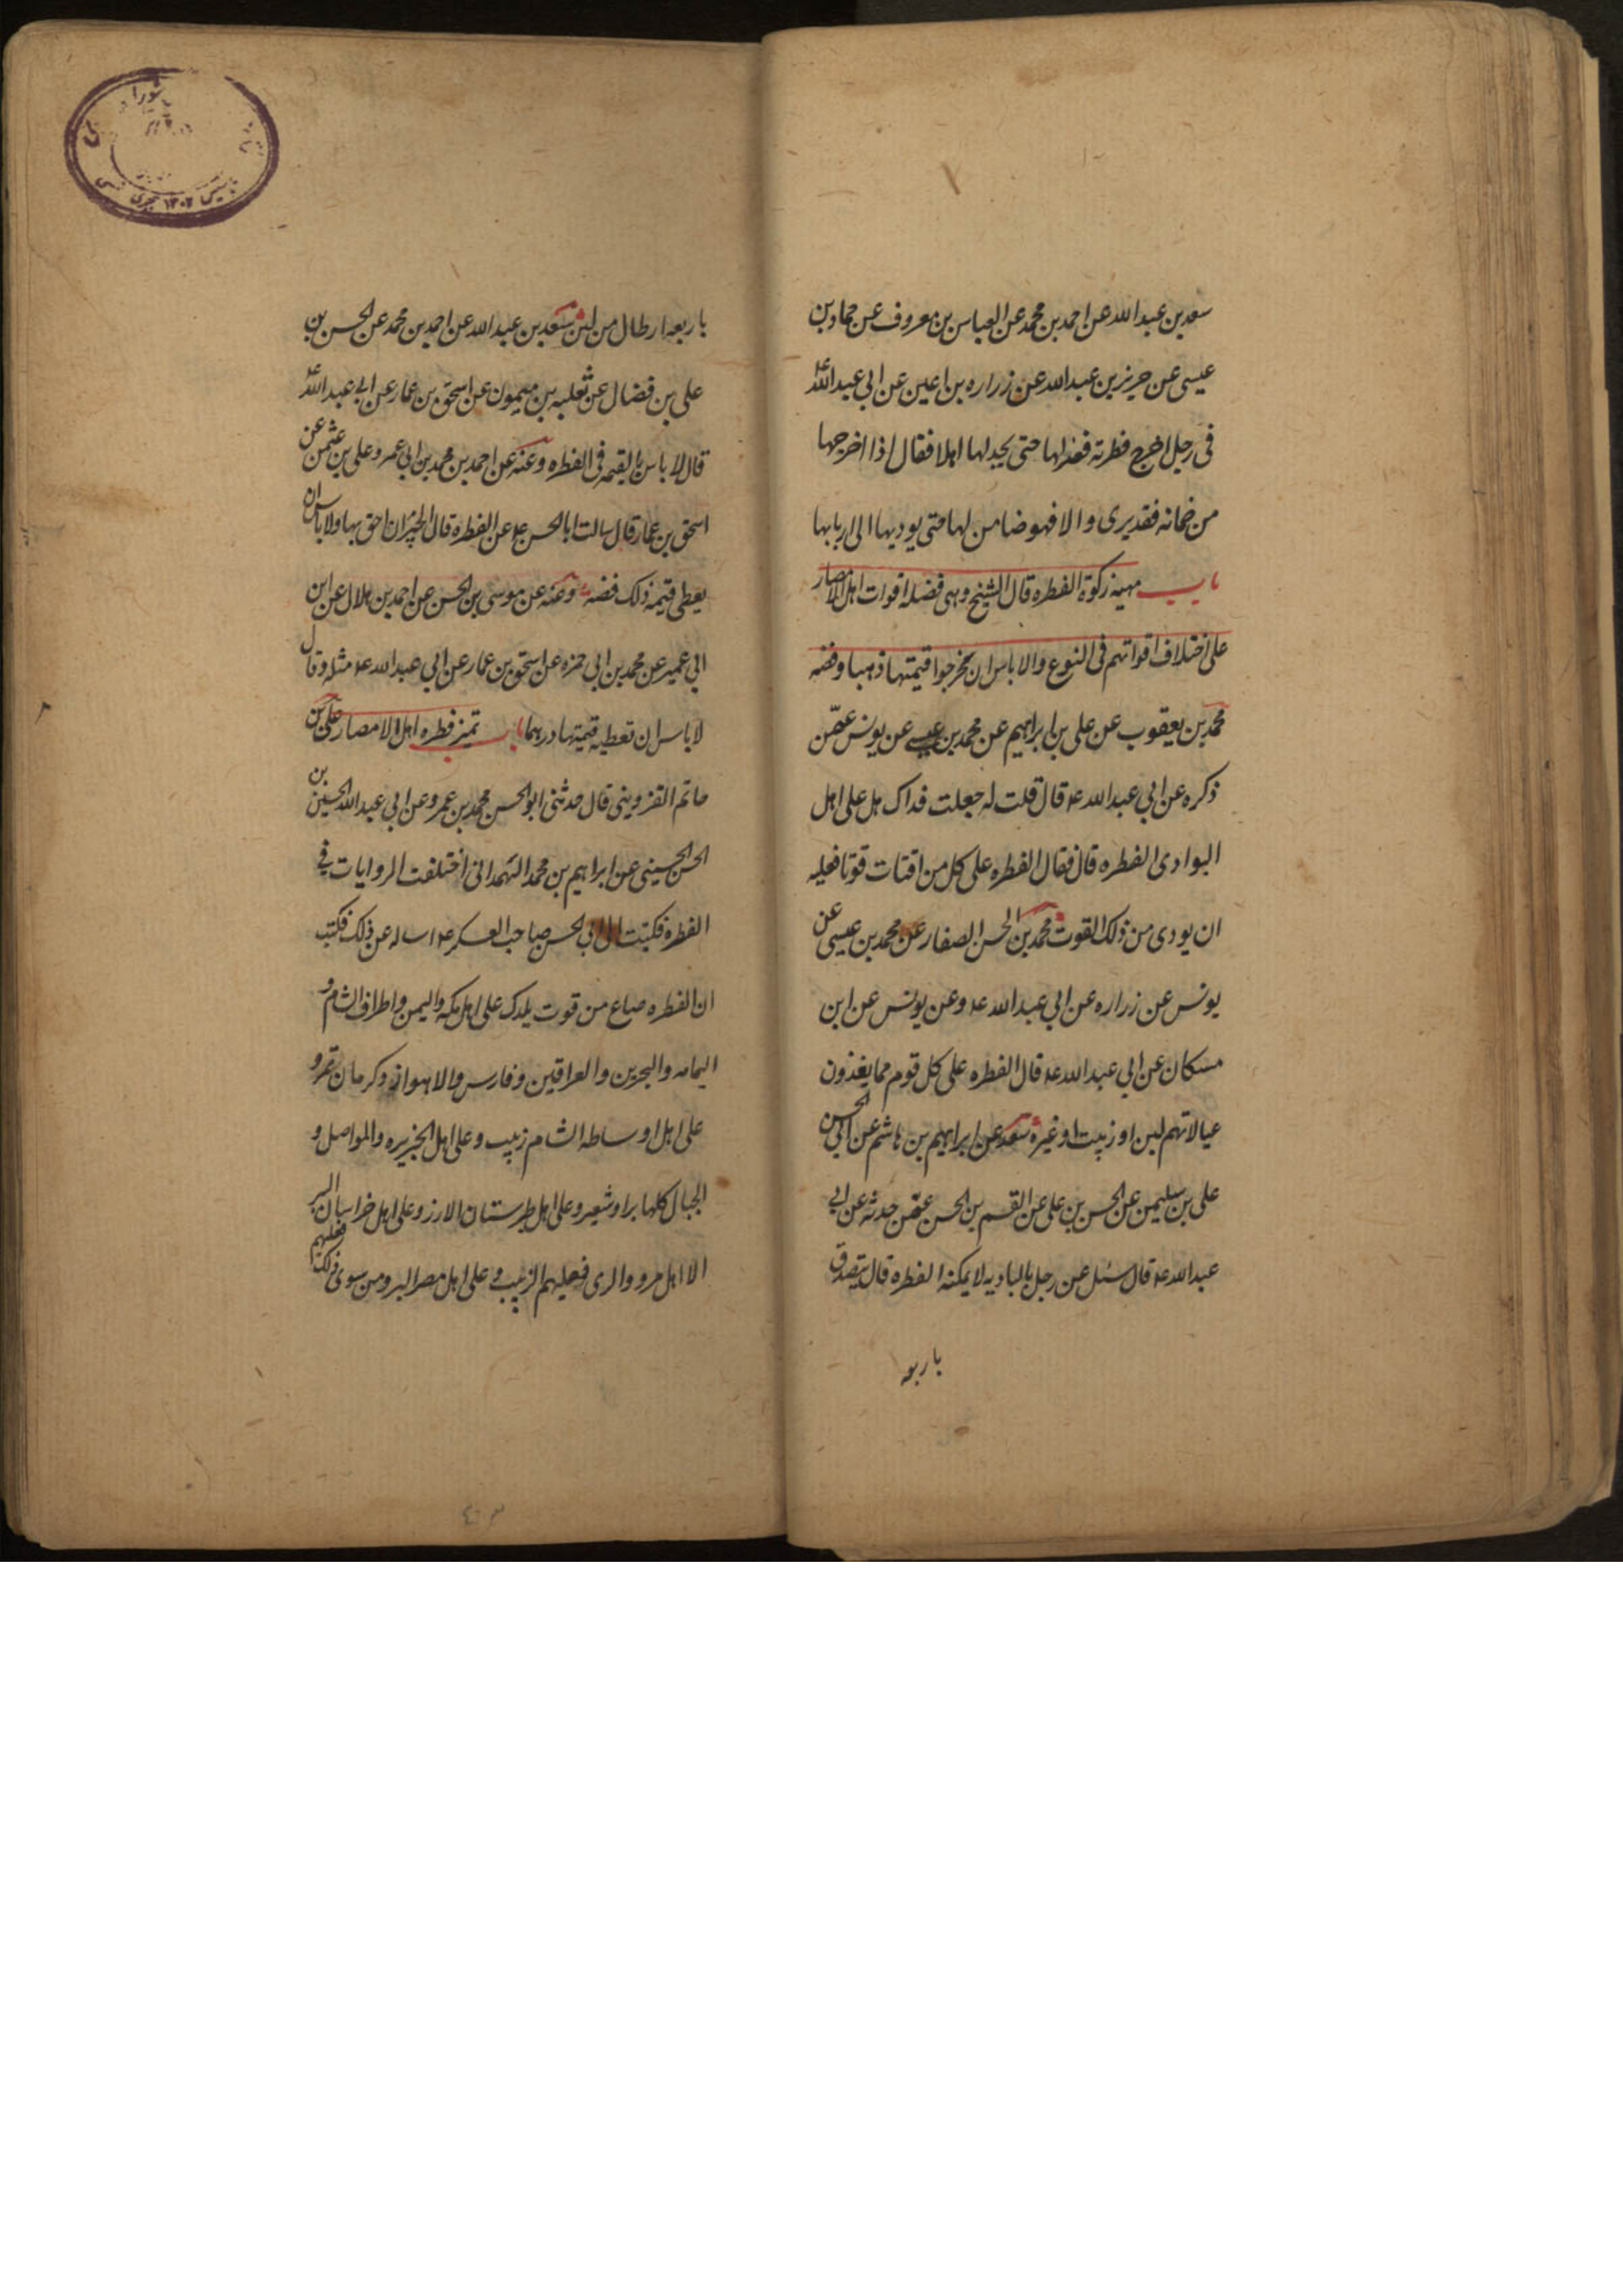 سعد بن عبد الله عن احمد بن محمد عن العباس بن معروف عن حماد بن
عيسى عن حريز بن عبد الله عن زراره بن اعين عن ابي عبد الله ع
فى رجل اخرج فطرته فعزلها حتى يجد لها اهلا فقال اذا اخرجها
من ضمانه فقد برى والا فهو ضامن لها حتى يوديها الى اربابها
باب مهيه زكوة الفطره قال الشيخ وهى فضله اقوات اهل الامصار
على اختلاف اقواتهم فى النوع والا باس ان يخرجوا قيمتها ذهبا وفضه
محمد بن يعقوب عن على بن ابراهيم عن محمد بن عيسى عن يونس عمّن
ذكره عن ابي عبد الله ع قال قلت له جعلت فداك هل على اهل
البوادى الفطره قال فقال الفطره على كل من اقتات قوتا فعليه
ان يودى من ذلك القوت محمد بن الحسن الصفار عن محمد بن عيسى عن
يونس عن زراره عن ابي عبد الله ع وعن يونس عن ابن
مسكان عن ابي عبد الله ع قال الفطره على كل قوم مما يغذون
عيالاتهم لبن او زبيب او غيره سعد عن ابراهيم بن هاشم عن ابى الحسن
على بن سليمن عن الحسن بن على عن القسم بن الحسن عمّن حدثه عن ابي
عبد الله ع قال سئل عن رجل بالباديه لا يمكنه الفطره قال يتصدق
باربعه
باربعه ارطال من لبن سعد بن عبد الله عن احمد بن محمد عن الحسن بن
على بن فضال عن ثعلبه بن ميمون عن اسحق بن عمار عن ابي عبد الله ع
قال لا باس بالقيمه فى الفطره وعنه عن احمد بن محمد بن ابي عمرو على بن عثمن عن
اسحق بن عمار قال سالت ابا الحسن ع عن الفطره قال الجيران احق بها ولا باس ان
يعطى قيمه ذلك فضه وعنه عن موسى بن الحسن عن احمد بن هلال عن ابن
ابي عمير عن محمد بن ابي حمزه عن اسحق بن عمار عن ابي عبد الله ع مثله وقال
لا باس ان تعطيه قيمتها درهما باب تميز فطره اهل الامصار على بن
حاتم القزوينى قال حدثنى ابو الحسن محمد بن عمرو عن ابي عبد الله الحسين بن
الحسن الحسينى عن ابراهيم بن محمد الهمدانى اختلفت الروايات فى
الفطره فكتبت الى ابي الحسن صاحب العسكر ع اساله عن ذلك فكتب
ان الفطره صاع من قوت بلدك على اهل مكه واليمن واطراف الشام و
اليمامه والبحرين والعراقين وفارس والاهواز وكرمان تمر و
على اهل اوساطه الشام زبيب وعلى اهل الجزيره والمواصل و
الجبال كلها برا وشعير وعلى اهل طبرستان الارز وعلى اهل خراسان البر
الا اهل مرو والرى فعليهم الزبيب وعلى اهل مصر البر ومن سوى ذلك فعليهم